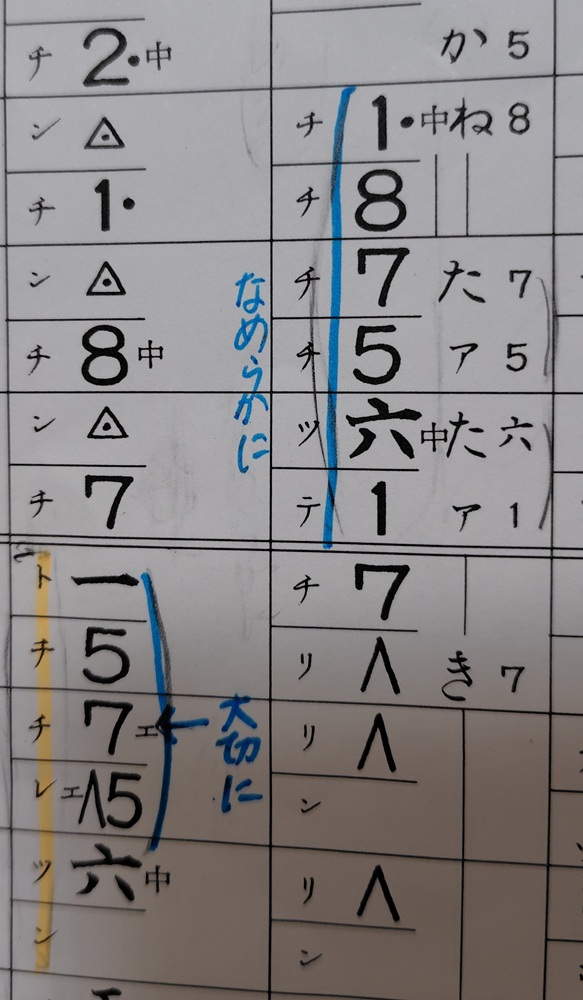 か 5
チ 1• 中 ね 8
チ 8
チ 7 た 7
チ 5 ア 5
ツ 六 中 た 六
テ 1 ア 1
チ 7
リ ∧ き 7
リ ∧
ン
リ ∧
ン
なめらかに
大切に
チ 2• 中
ン ◬
チ 1•
ン ◬
チ 8 中
ン ◬
チ 7
ト 一
チ 5
チ 7 エ
レ エ ∧5
ツ 六 中
ン